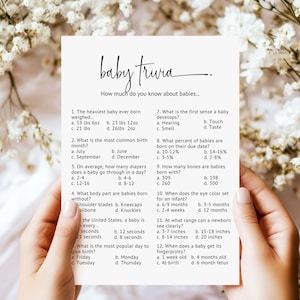 baby trivia
How much do you know about babies...
1. The heaviest baby ever born
weighed...
a. 19 lbs 6oz b. 23 lbs 12oz
c. 21 lbs d. 26lbs 2oz
2. What is the most common birth
month?
a. July b. June
c. September d. December
3. On average, how many diapers
does a baby go through in a day?
a. 2-4 b. 4-6
c. 12-16 d. 8-12
4. What body part are babies born
without?
shoulder blades b. Kneecaps
d. Knuckles
United States, a baby is
every...
b. 12 seconds
d. 8 seconds
What is the most popular day to
b. Monday
c. Tuesday d. Thursday
7. What is the first sense a baby
develops?
a. Hearing b. Touch
c. Smell d. Taste
8. What percent of babies are
born on their due date?
a. 10-12% b. 14-16%
c. 3-5% d. 7-8%
9. How many bones are babies
born with?
a. 309 b. 198
c. 260 d. 300
10. When does the eye color set
for an infant?
a. 6-9 months b. 3-6 months
c. 2-4 weeks d. 12 months
11. At what range can a newborn
see clearly?
a. 3-7 inches b. 15-18 inches
c. 8-14 inches d. 20 inches
12. When does a baby get its
fingerprints?
a. 1 week old b. 4 months old
c. At birth d. 6 month fetus